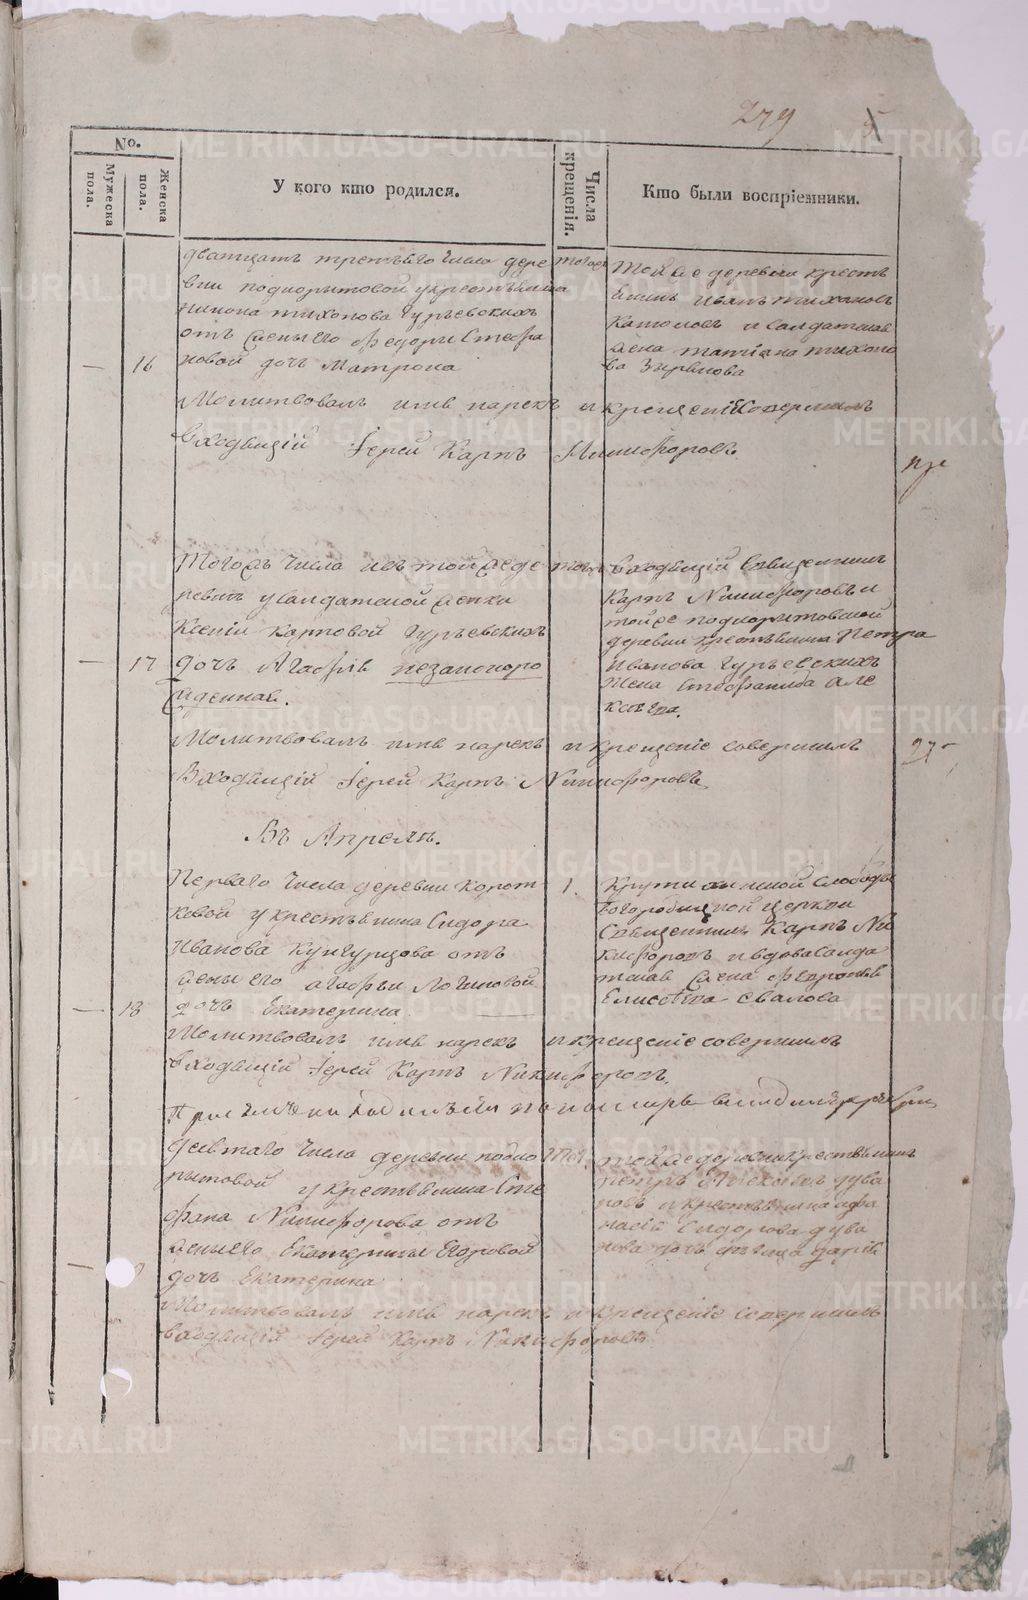 279
No.
Мужеска пола.
Женска пола.
У кого кто родился.
Числа крещенія.
Кто были воспріемники.
дватцать третьяго числа дере
вни подкорытовой у крестьянина
тихонова Гурьевскихъ
отъ жены его Федоры Стефа
новой дочь Матрона
16
тогожъ
тойже деревни кресть
янинъ иванъ тихоновъ
и солдатская
жена татіана тихоно
ва Зырянова
Молитвовалъ имя нарекъ и крещеніе совершилъ
входящій Іерей Карпъ Никифоровъ
Тогожъ числа изъ тойже де
ревни у салдатской женки
Ксеніи Карповой Гурьевскихъ
17
дочь Агафья незаконоро
жденная.
входящій Священникъ
Карпъ Никифоровъ и
тойже подкорытовской
деревни крестьянина Петра
Иванова Гурьевскихъ
жена Стефанида але
Молитвовалъ имя нарекъ и крещеніе совершилъ
Входящій Іерей Карпъ Никифоровъ
Въ Апреле.
Перваго числа деревни корот
ковой у крестьянина Сидора
Иванова Кунгурцова отъ
жены его агафьи Логиновой
18
дочь Екатерина
1.
Крутихинской Слободы
богородицкой церкви
Священникъ Карпъ Ни
кифоровъ и вдова салда
тская жена
Елисовета свалова
Молитвовалъ имя нарекъ и крещеніе совершилъ
входящій Іерей Карпъ Никифоровъ.
девятаго числа деревни подко
рытовой у крестьянина Сте
фана Никифорова отъ
жены его Екатерины Егоровой
дочь Екатерина
тойже деревни крестьянинъ
петръ
и крестьянина афа
насья Сидорова
дочь девица дарія
Молитвовалъ имя нарекъ и крещеніе совершилъ
входящій Іерей Карпъ Никифоровъ
METRIKI.GASO-URAL.RU